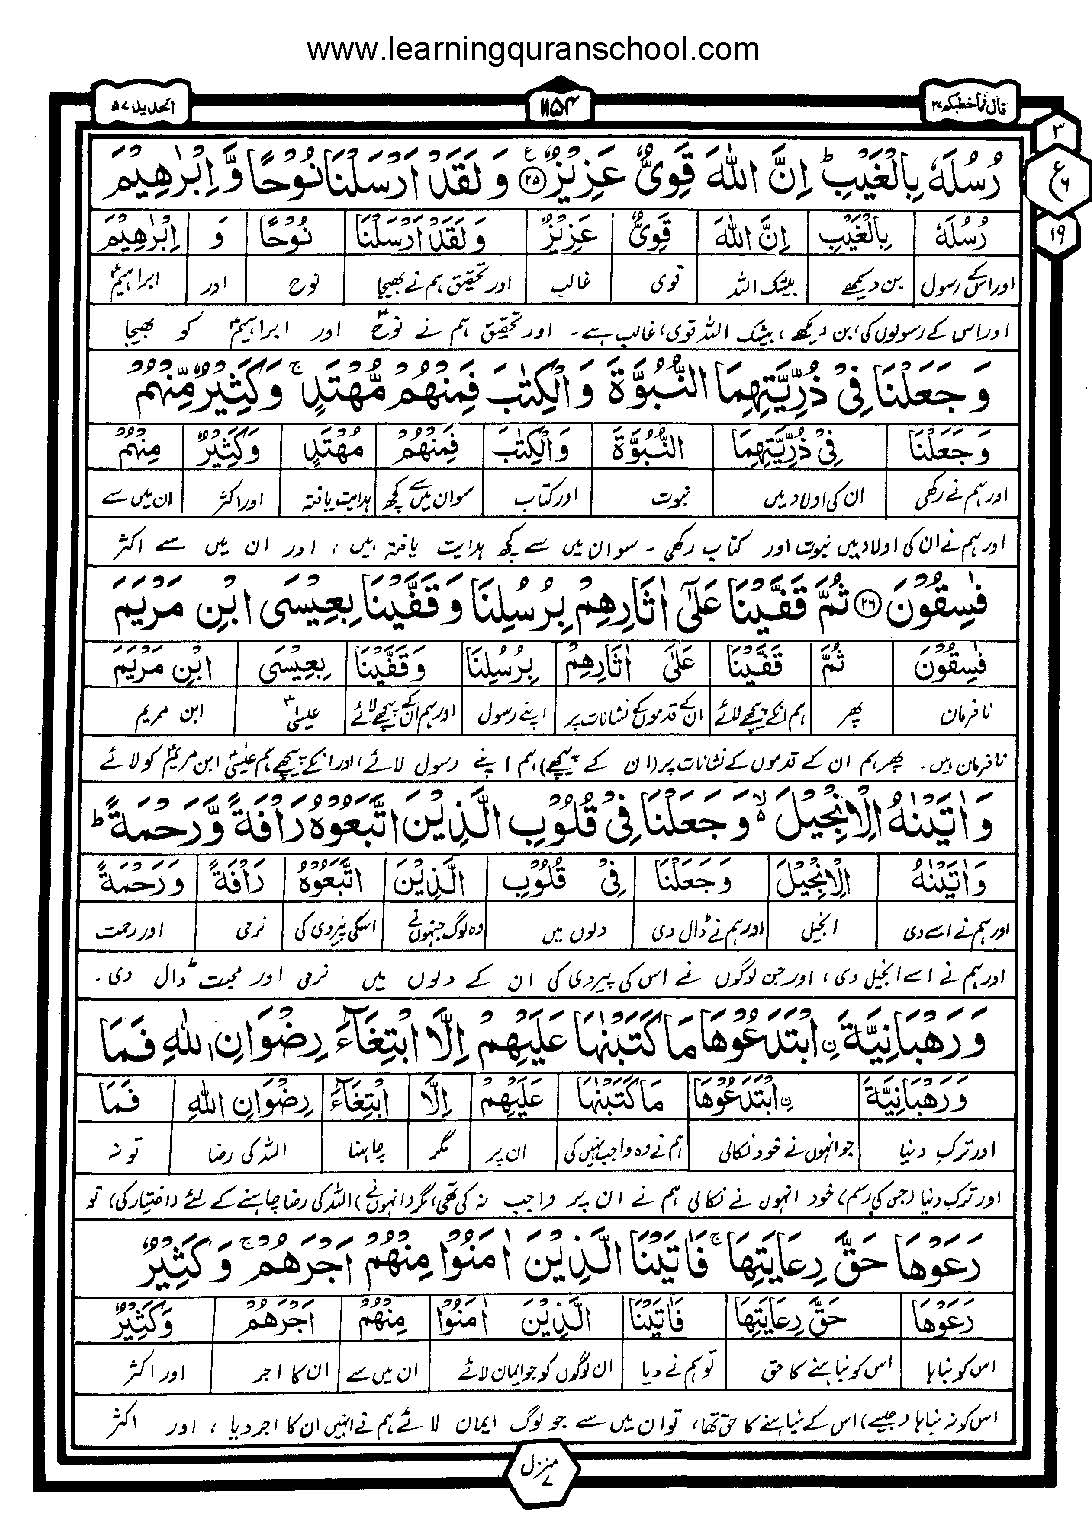 www.learningquranschool.com
قال فما خطبكم ۲۷
۱۱۵۴
الحدید ۵۷
۳
ع
۶
۱۹
رُسُلَهٗ بِالْغَیْبِ ؕ اِنَّ اللّٰهَ قَوِیٌّ عَزِیْزٌ ۠﴿۲۵﴾ وَ لَقَدْ اَرْسَلْنَا نُوْحًا وَّ اِبْرٰهِیْمَ
رُسُلَهٗ بِالْغَیْبِ اِنَّ اللّٰهَ قَوِیٌّ عَزِیْزٌ وَ لَقَدْ اَرْسَلْنَا نُوْحًا وَ اِبْرٰهِیْمَ
اور اس کے رسول بن دیکھے بیشک اللہ قوی غالب اور تحقیق ہم نے بھیجا نوح اور ابراہیم
اور اس کے رسولوں کی بن دیکھے، بیشک اللہ قوی، غالب ہے۔ اور تحقیق ہم نے نوحؑ اور ابراہیمؑ کو بھیجا
وَ جَعَلْنَا فِیْ ذُرِّیَّتِهِمَا النُّبُوَّةَ وَ الْكِتٰبَ فَمِنْهُمْ مُّهْتَدٍ ۚ وَ كَثِیْرٌ مِّنْهُمْ
وَ جَعَلْنَا فِیْ ذُرِّیَّتِهِمَا النُّبُوَّةَ وَالْكِتٰبَ فَمِنْهُمْ مُهْتَدٍ وَكَثِیْرٌ مِنْهُمْ
اور ہم نے رکھی ان کی اولاد میں نبوت اور کتاب سو ان میں سے کچھ ہدایت یافتہ اور اکثر ان میں سے
اور ہم نے ان کی اولاد میں نبوت اور کتاب رکھی۔ سو ان میں سے کچھ ہدایت یافتہ ہیں، اور ان میں سے اکثر
فٰسِقُوْنَ ﴿۲۶﴾ ثُمَّ قَفَّیْنَا عَلٰۤی اٰثَارِهِمْ بِرُسُلِنَا وَ قَفَّیْنَا بِعِیْسَی ابْنِ مَرْیَمَ
فٰسِقُوْنَ ثُمَّ قَفَّیْنَا عَلٰۤی اٰثَارِهِمْ بِرُسُلِنَا وَقَفَّیْنَا بِعِیْسَی ابْنِ مَرْیَمَ
نافرمان پھر ہم انکے پیچھے لائے ان کے قدموں کے نشانات پر اپنے رسول اور ہم ان کے پیچھے لائے عیسیٰؑ ابن مریم
نافرمان ہیں۔ پھر ہم ان کے قدموں کے نشانات پر (ان کے پیچھے) ہم اپنے رسول لائے، اور انکے پیچھے ہم عیسیٰؑ ابن مریمؑ کو لائے
وَ اٰتَیْنٰهُ الْاِنْجِیْلَ ۙ۬ وَ جَعَلْنَا فِیْ قُلُوْبِ الَّذِیْنَ اتَّبَعُوْهُ رَاْفَةً وَّ رَحْمَةً ؕ
وَ اٰتَیْنٰهُ الْاِنْجِیْلَ وَ جَعَلْنَا فِیْ قُلُوْبِ الَّذِیْنَ اتَّبَعُوْهُ رَاْفَةً وَ رَحْمَةً
اور ہم نے اسے دی انجیل اور ہم نے ڈال دی دلوں میں وہ لوگ جنہوں نے اسکی پیروی کی نرمی اور رحمت
اور ہم نے اسے انجیل دی، اور جن لوگوں نے اس کی پیروی کی ان کے دلوں میں نرمی اور محبت ڈال دی۔
وَ رَهْبَانِیَّةَ ِ۟ابْتَدَعُوْهَا مَا كَتَبْنٰهَا عَلَیْهِمْ اِلَّا ابْتِغَآءَ رِضْوَانِ اللّٰهِ فَمَا
وَ رَهْبَانِیَّةَ ِ۟ابْتَدَعُوْهَا مَا كَتَبْنٰهَا عَلَیْهِمْ اِلَّا ابْتِغَآءَ رِضْوَانِ اللّٰهِ فَمَا
اور ترک دنیا جو انہوں نے خود نکالی ہم نے وہ واجب نہیں کی ان پر مگر چاہنا اللہ کی رضا تو نہ
اور ترک دنیا (جس کی رسم) خود انہوں نے نکالی ہم نے ان پر واجب نہ کی تھی، مگر (انہوں نے) اللہ کی رضا چاہنے کے لئے (اختیار کی) تو
رَعَوْهَا حَقَّ رِعَایَتِهَا ۚ فَاٰتَیْنَا الَّذِیْنَ اٰمَنُوْا مِنْهُمْ اَجْرَهُمْ ۚ وَ كَثِیْرٌ
رَعَوْهَا حَقَّ رِعَایَتِهَا فَاٰتَیْنَا الَّذِیْنَ اٰمَنُوْا مِنْهُمْ اَجْرَهُمْ وَ كَثِیْرٌ
اس کو نباہا اس کو نباہنے کا حق تو ہم نے دیا ان لوگوں کو جو ایمان لائے ان میں سے ان کا اجر اور اکثر
اس کو نہ نباہا (جیسے) اس کے نباہنے کا حق تھا، تو ان میں سے جو لوگ ایمان لائے ہم نے انہیں ان کا اجر دیا، اور اکثر
منزل ۷